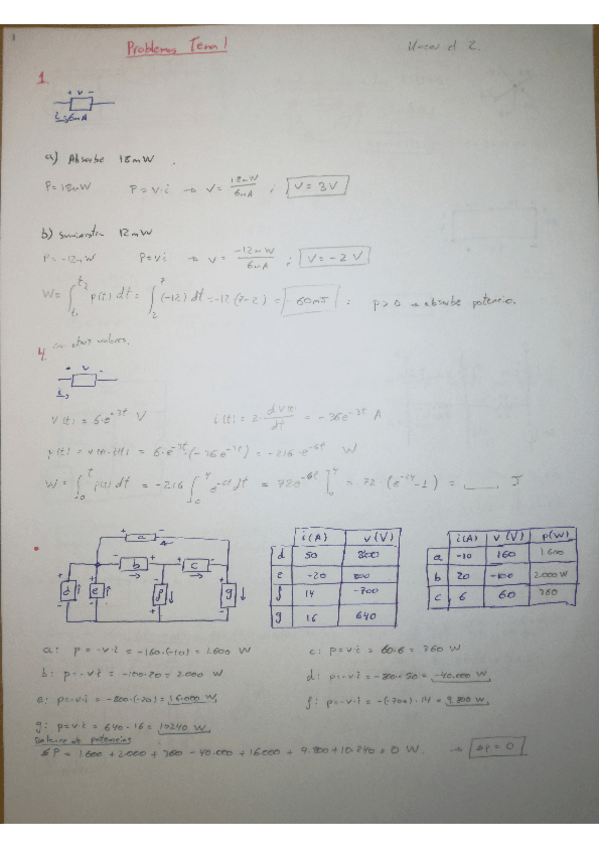 Problemas Tema 1
1
+ v -
i=6mA
a) Absorbe 18mW.
P=18mW P=v·i → v= 18mW/6mA ; V=3V
b) Suministra 12mW
P=-12mW P=vi → v= -12mW/6mA ; V=-2V
W= ∫ t1 t2 p(t) dt = ∫ 2 7 (-12) dt = -12(7-2) = -60mJ ; p>0 → absorbe potencia.
4. otros valores.
+ v -
i
v(t) = 6·e^-3t V i(t) = 2· dv(t)/dt = -36e^-3t A
p(t) = v(t)·i(t) = 6·e^-3t·(-36e^-3t) = -216·e^-6t W
W = ∫ p(t) dt = -216 ∫ 0 4 e^-6t dt = 72·(e^-24-1) = ___ J
a
b c
d e f g
i(A) v(V)
d 50 800
e -20 800
f 14 -700
g 16 640
i(A) v(V) p(W)
a -10 160 1600
b 20 -100 2.000 W
c 6 60 360
a: p=-v·i = -160·(-10) = 1.600 W c: p=v·i = 60·6 = 360 W
b: p=-v·i = -100·20 = 2.000 W d: p=-v·i = -800·50 = -40.000 W
e: p=-v·i = -800·(-20) = 16.000 W f: p=-v·i = -(-700)·14 = 9.800 W
g: p=v·i = 640·16 = 10240 W
Balance de potencias
ΣP = 1600 + 2000 + 360 - 40.000 + 16000 + 9.800 + 10.240 = 0 W. → ΔP = 0